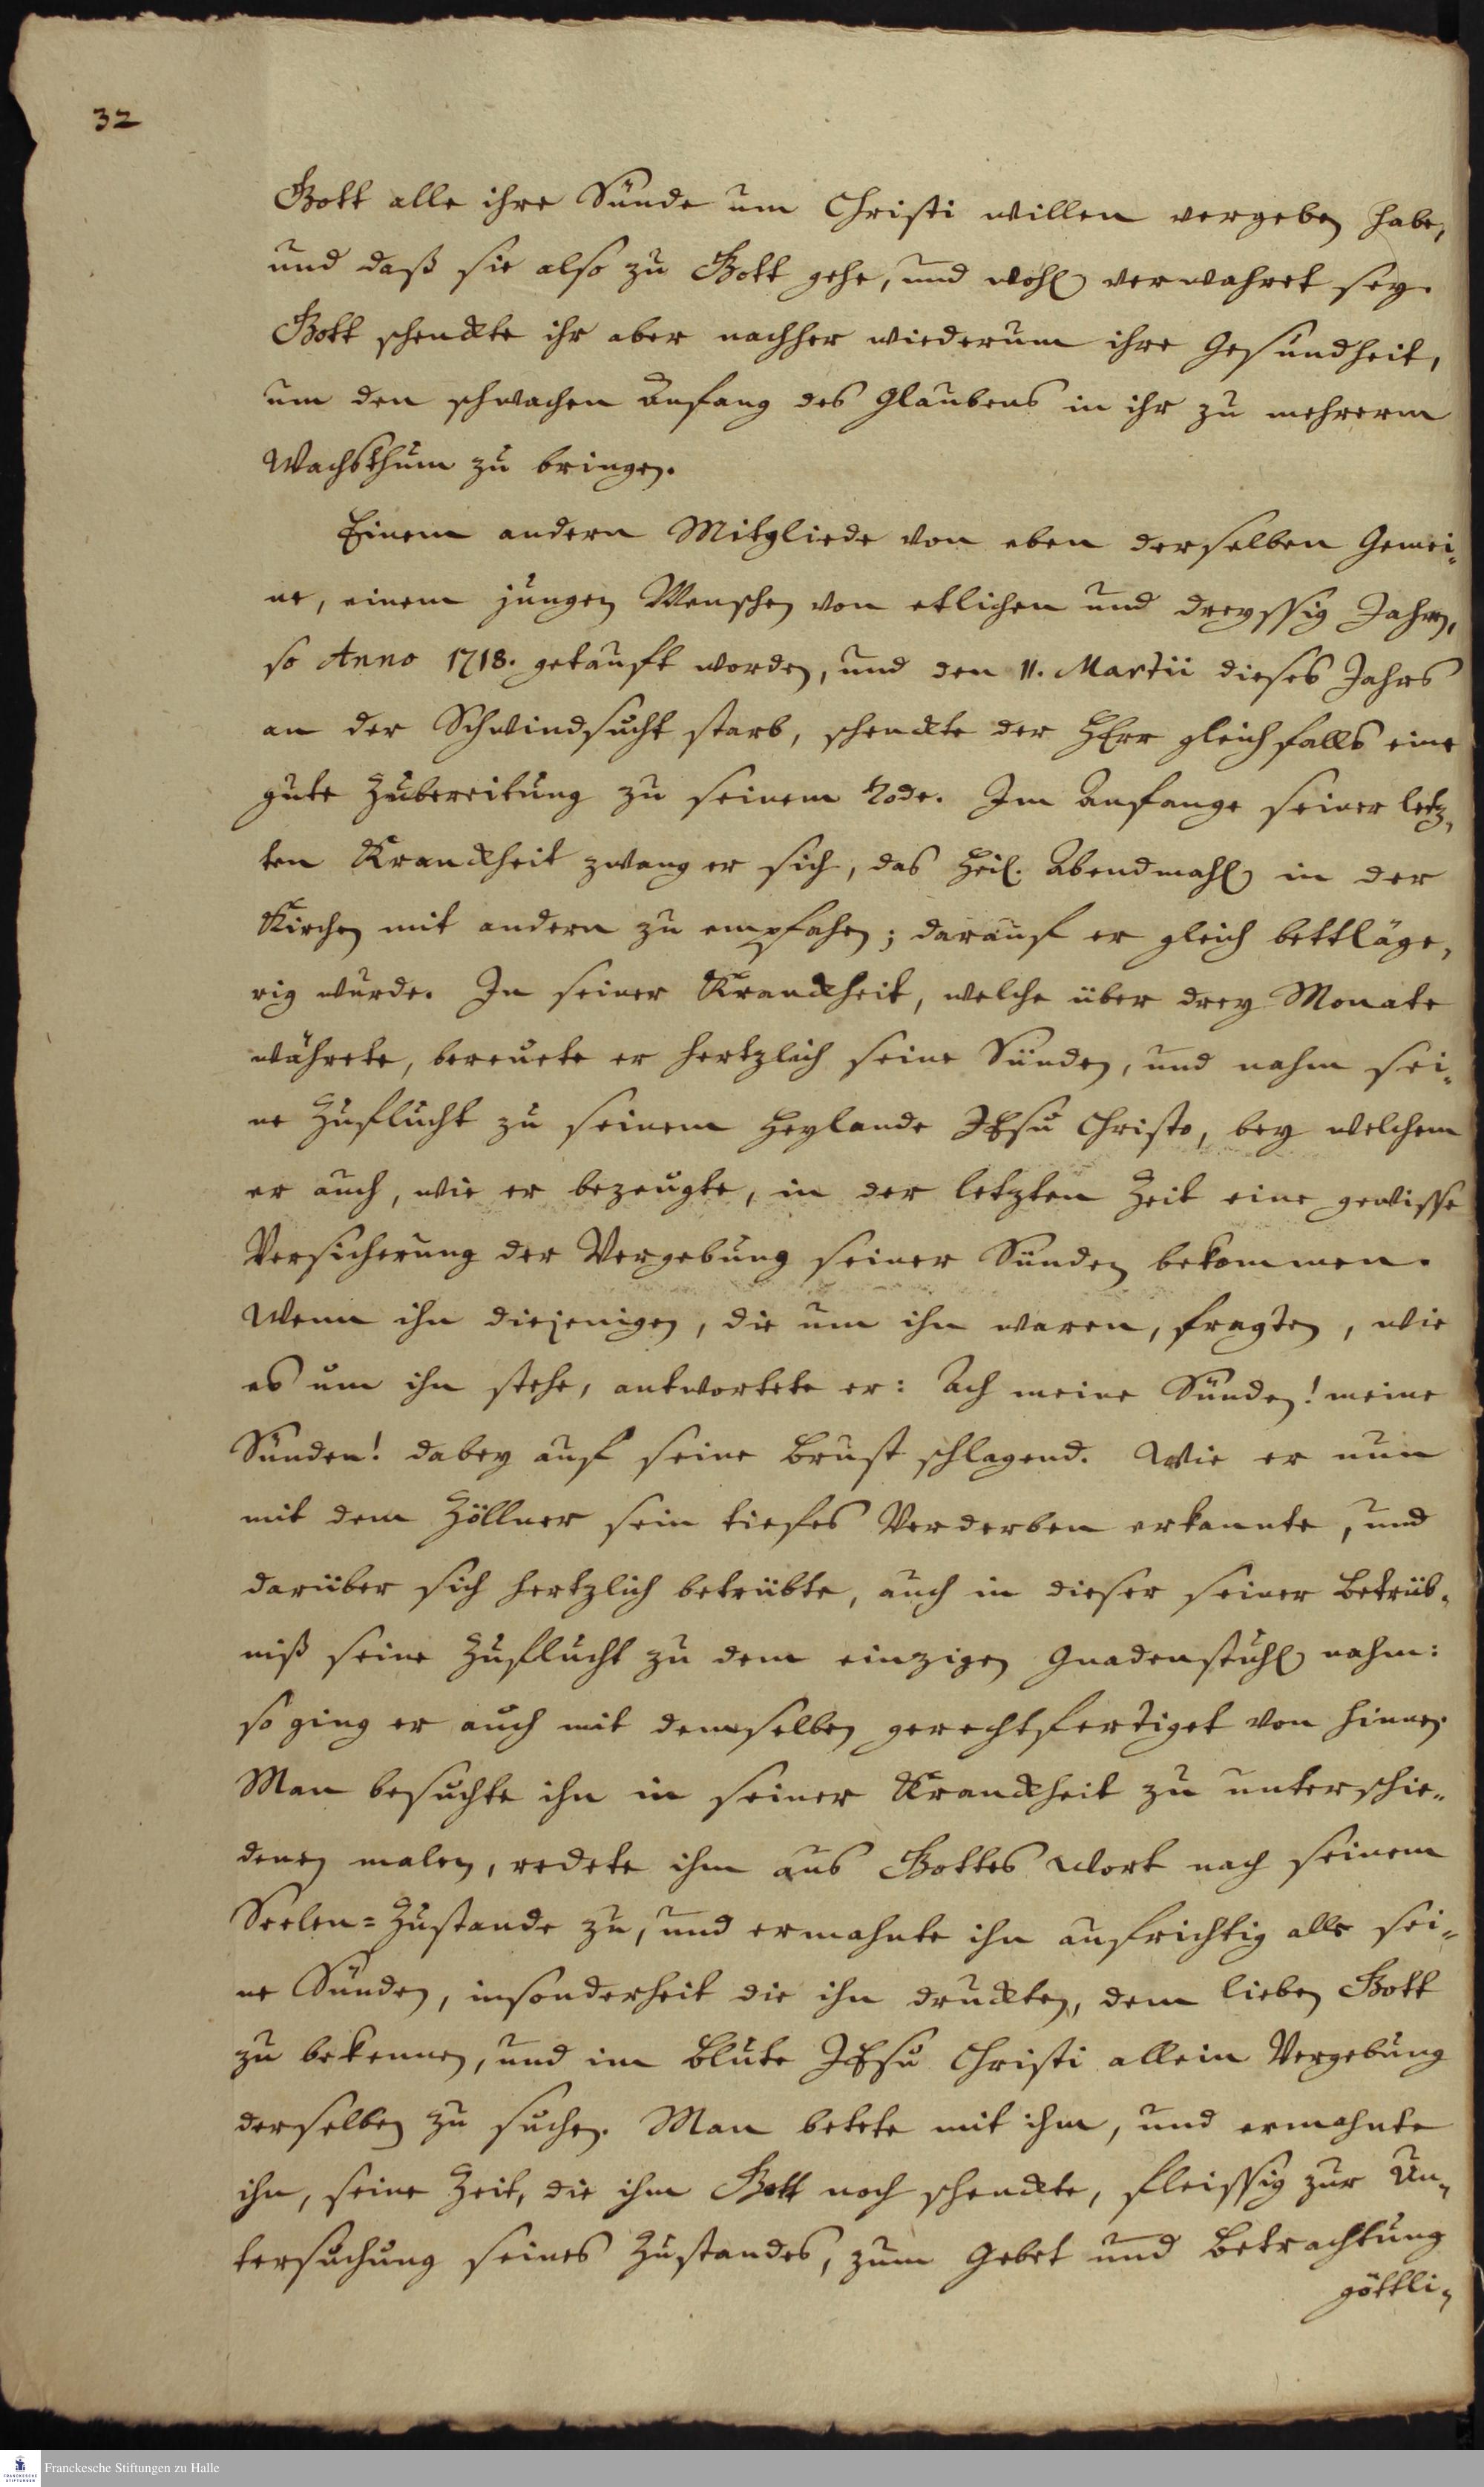 32
Gott alle ihre Sünde um Christi willen vergeben habe,
und daß sie also zu Gott gehe, und wohl verwahret sey.
Gott schenckte ihr aber nachher wiederum ihre Gesundheit,
um den schwachen Anfang des Glaubens in ihr zu mehrerm
Wachsthum zu bringen.
Einem andern Mitgliede von eben derselben Gemei-
ne, einem jungen Menschen von etlichen und dreyssig Jahren,
so Anno 1718. getauft worden, und den 11. Martii dieses Jahrs
an der Schwindsucht starb, schenckte der HErr gleichfalls eine
gute Zubereitung zu seinem Tode. Im Anfange seiner letz-
ten Kranckheit zwang er sich, das Heil. Abendmahl in der
Kirchen mit andern zu empfahen; darauf er gleich bettläge-
rig wurde. In seiner Kranckheit, welche über drey Monate
währete, bereuete er hertzlich seine Sünden, und nahm sei-
ne Zuflucht zu seinem Heylande JEsu Christo, bey welchem
er auch, wie er bezeugte, in der letzten Zeit eine gewisse
Versicherung der Vergebung seiner Sünden bekommen.
Wenn ihn diejenigen, die um ihn waren, fragten, wie
es um ihn stehe, antwortete er: Ach meine Sünden! meine
Sünden! dabey auf seine Brust schlagend. Wie er nun
mit dem Zöllner sein tiefes Verderben erkannte, und
darüber sich hertzlich betrübte, auch in dieser seiner Betrüb-
niß seine Zuflucht zu dem einzigen Gnadenstuhl nahm:
so ging er auch mit demselben gerechtfertiget von hinnen.
Man besuchte ihn in seiner Kranckheit zu unterschie-
denen malen, redete ihm aus Gottes Wort nach seinem
Seelen=Zustande zu, und ermahnte ihn aufrichtig alle sei-
ne Sünden, insonderheit die ihn druckten, dem lieben Gott
zu bekennen, und im Blute JEsu Christi allein Vergebung
derselben zu suchen. Man betete mit ihm, und ermahnte
ihn, seine Zeit, die ihm Gott noch schenckte, fleissig zur Un-
tersuchung seines Zustandes, zum Gebet und Betrachtung
göttli-
FRANCKESCHE STIFTUNGEN
Franckesche Stiftungen zu Halle